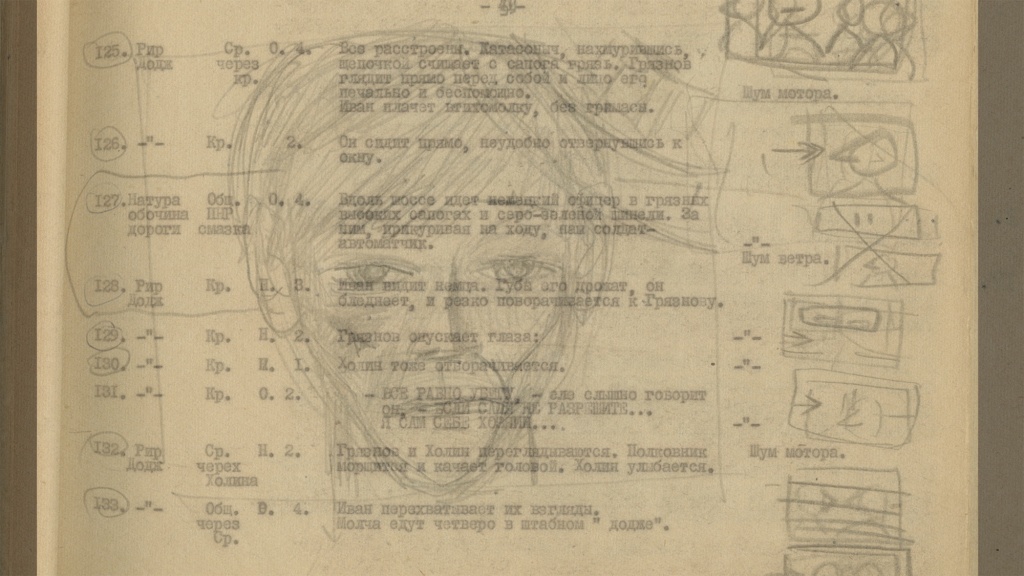 125. Рир Ср. О. 4. Все расстроены. Катасоныч, нахмурившись,
Додж через щепочкой счищает с сапога грязь. Грязнов
кр. глядит прямо перед собой и лицо его
печально и беспомощно. Шум мотора.
Иван плачет втихомолку, без гримася.
126. -"- Кр. 2. Он сидит прямо, неудобно отвернувшись к
окну.
127. Натура Общ. О. 4. Вдоль шоссе идет немецкий офицер в грязных
обочина ПНР высоких сапогах и серо-зеленой шинели. За
дороги смазка ним, прикуривая на ходу, наш солдат-
автоматчик. -"-
Шум ветра.
128. Рир Кр. Н. 3. Иван видит немца. Губы его дрожат, он
Додж бледнеет, и резко поворачивается к Грязнову.
129. -"- Кр. Н. 2. Грязнов опускает глаза: -"-
130. -"- Кр. М. 1. Холин тоже отворачивается. -"-
131. -"- Кр. О. 2. - ВСЕ РАВНО УБЕГУ, - еле слышно говорит
он, - ЕСЛИ САМИ НЕ РАЗРЕШИТЕ...
Я САМ СЕБЕ ХОЗЯИН.... -"-
132. Рир Ср. Н. 2. Грязнов и Холин переглядываются. Полковник Шум мотора.
Додж черех морщится и качает головой. Холин улыбается.
Холина
133. -"- Общ. В. 4. Иван перехватывает их взгляды.
через Молча едут четверо в штабном " додже".
Ср.